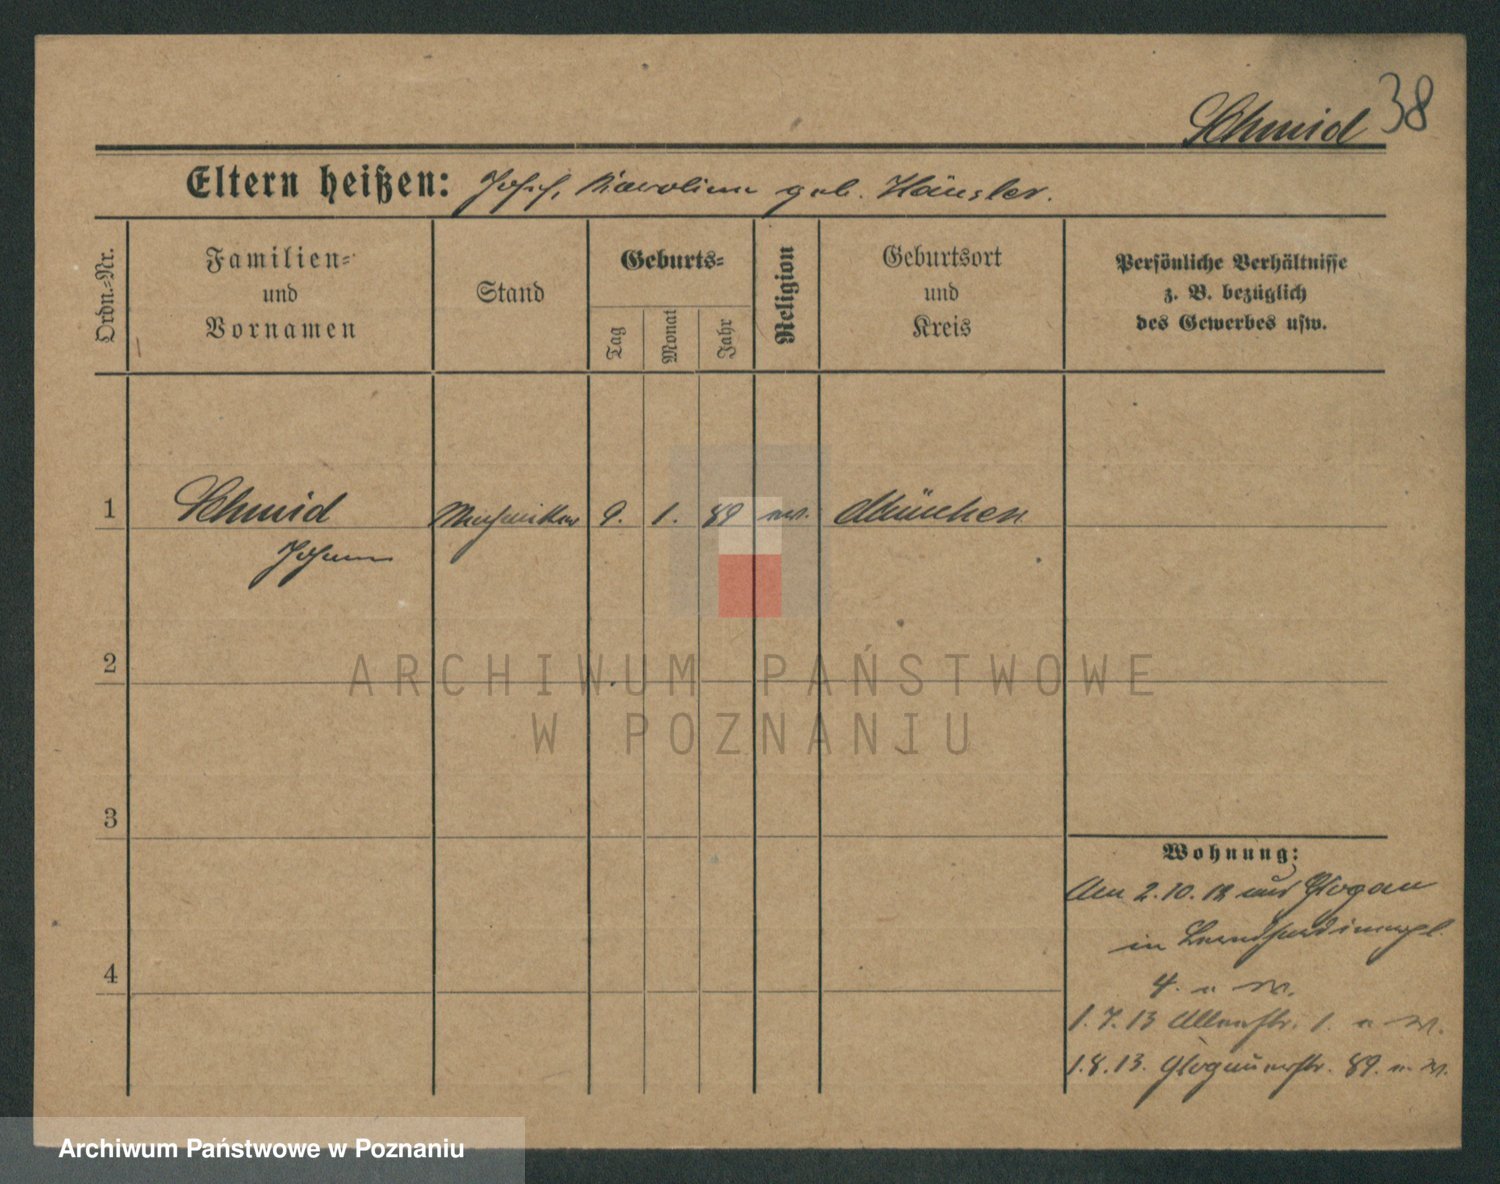 Schmid 38
Eltern heißen: Josef, Karoline geb. Häusler.
Ordn.-Nr.
Familien-
und
Vornamen
Stand
Geburts-
Tag
Monat
Jahr
Religion
Geburtsort
und
Kreis
Persönliche Verhältnisse
z. B. bezüglich
des Gewerbes usw.
1 Schmid Mechaniker 9. 1. 89 München
Johann
2
3
4
Wohnung:
Am 2.10.12 aus Glogau
in
4.
1.7.13 1.
1.8.13. Glogauerstr. 89.
ARCHIWUM PAŃSTWOWE
W POZNANIU
Archiwum Państwowe w Poznaniu